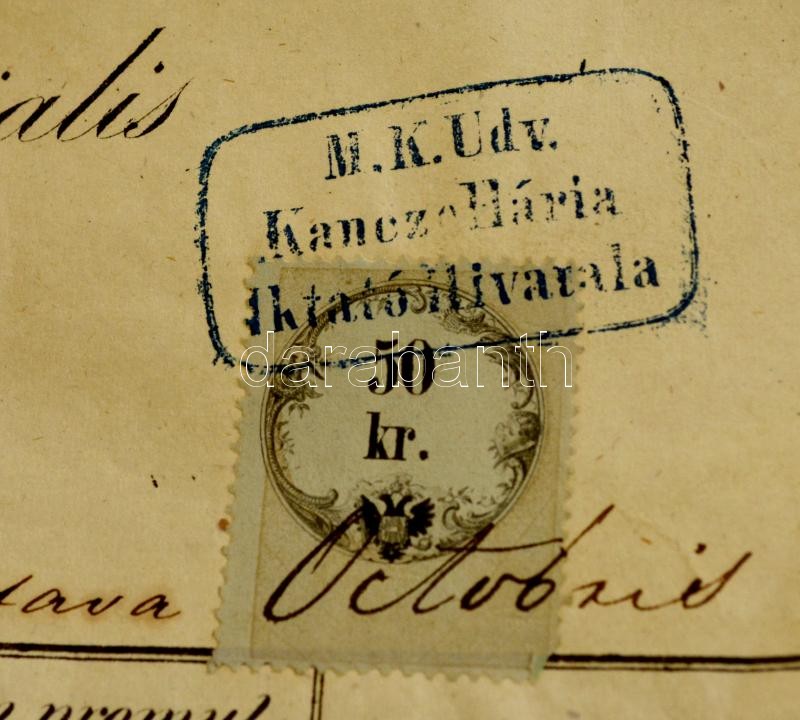 ialis
M.K.Udv.
Kanczellária
Iktató Hivatala
50
kr.
darabanth
tava Octobris